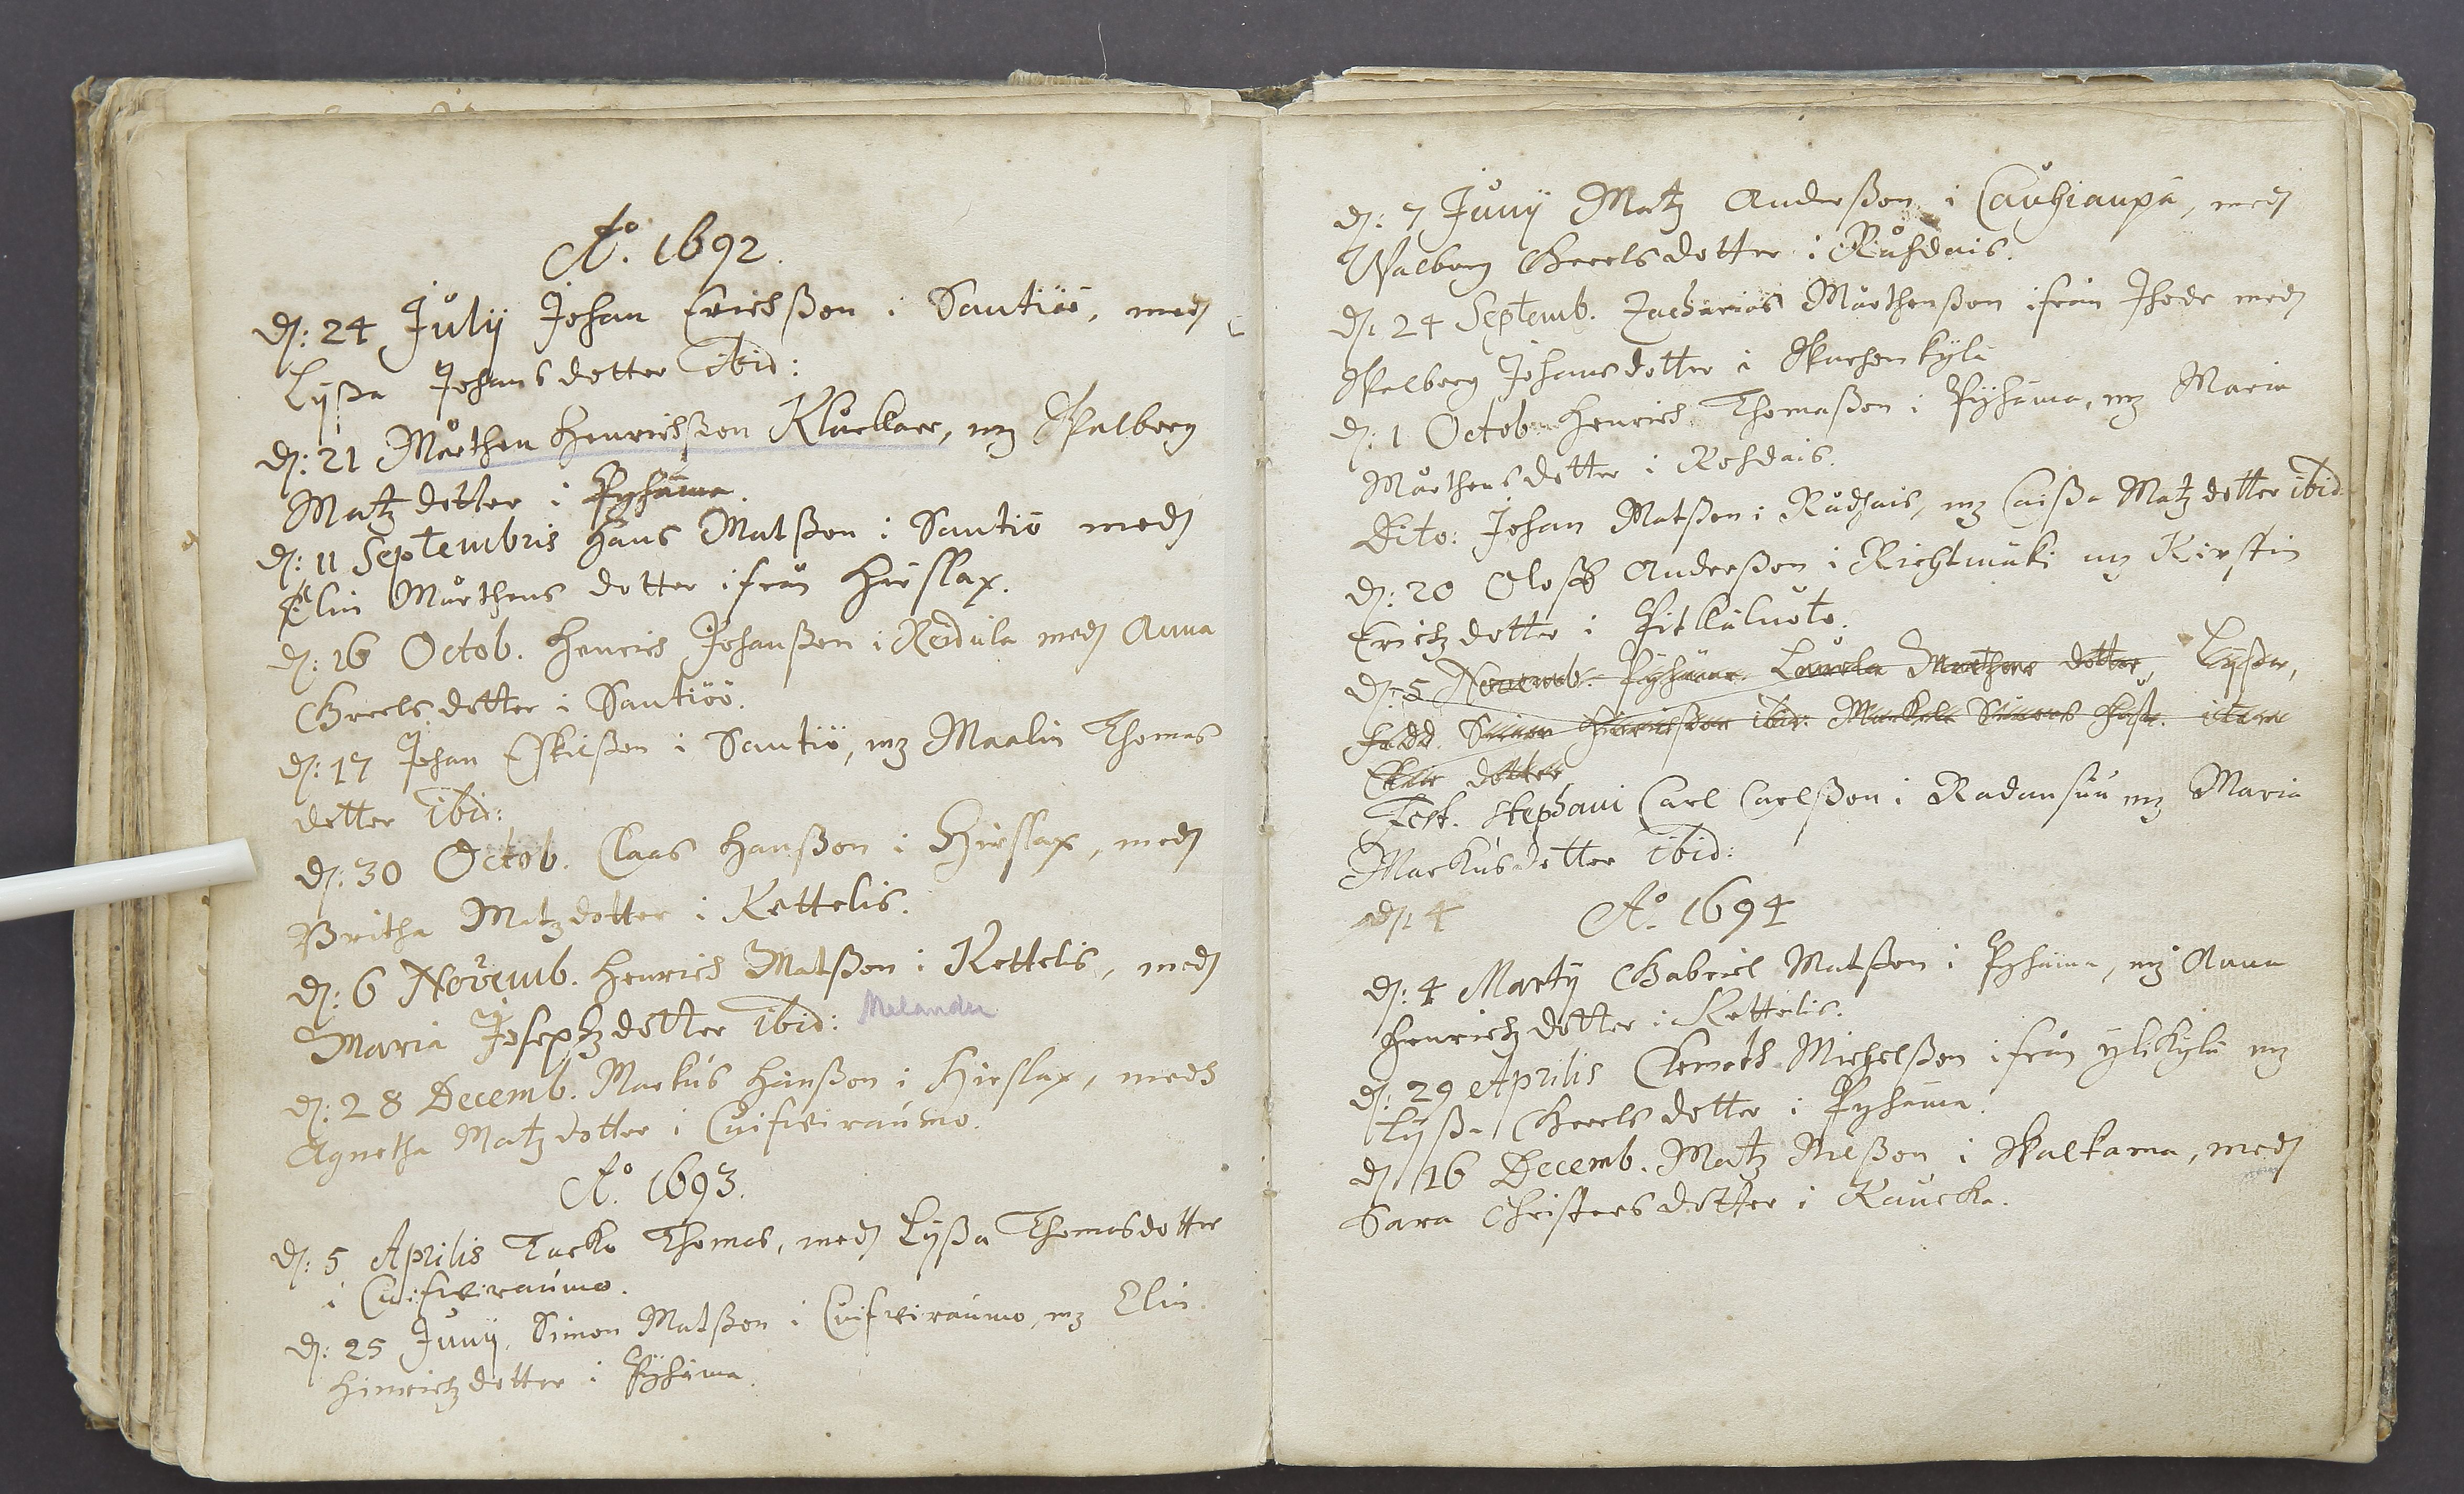 A:o 1692.
d: 24 July Johan Erichßon i Santiöö, med
Lyßa Johans dotter ibid:
d: 21 Mårthen Henrichßon Kluckare, mz Walborg
Matz dotter i Pyhäma.
d: 11 Septembris Hans Matßon i Santiö med
Elin Mårthens dotter ifrån Hirslax.
d: 16 Octob. Henrich Johanßon i Reidula med Anna
Greels dotter i Santiöö.
d: 17 Johan Eskilßon i Santiö, mz Maalin Thomas
dotter ibid:
d: 30 Octob. Claas Hanßon i Hirslax, med
Britha Matzdotter i Kettelis.
d: 6 Novemb. Henrich Matßon i Kettelis, med
Maria Josephzdotter ibid: Melander
d: 28 Decemb. Markus Hanßon i Hirslax, med
Agnetha Matzdotter i Cuifveiraumo.
A:o 1693.
d: 5 Aprilis Tacko Thomas, med Lyßa Thomasdotter
i Cuifveiraumo.
d: 25 Juny. Simon Matßon i Cuifveiraumo, mz Elin
Hinrichzdotter i Pyhäma.
d: 7 Juny Matz Anderßon i Cauhianpä, med
Walborg Greels dotter i Rohdais.
d: 24 Septemb. Zacharias Mårthenßon ifrån Ihode med
Walborg Johansdotter i
d: 1 Octob. Henrich Thomaßon i Pyhäma, mz Maria
Mårthensdotter i Rohdais.
Dito: Johan Matßon i Rådhais, mz Caißa Matzdotter ibid
d: 20 Oloff Anderßon i Richtmäki mz Kirstin
Erichzdotter i Pitkäluoto.
d: 5 Novemb. Pyhäma Mårthens dotter, Lyßa,
Fadd. Simon Hinrichßon ibid: Simons
dotter
Fest. Stephani Carl Carlßon i Radansuu mz Maria
Markusdotter ibid:
d: 4 A:o 1694
d: 4 Marty Gabriel Matßon i Pyhäma, mz Anna
Henrichzdotter i Kettelis.
d: 29 Aprilis Clemeth Michelßon ifrån ylikylä mz
Lyßa Greels dotter i Pyhäma.
d: 16 Decemb. Matz Nilßon i Walkama, med
Sara Christersdotter i Kaucka.